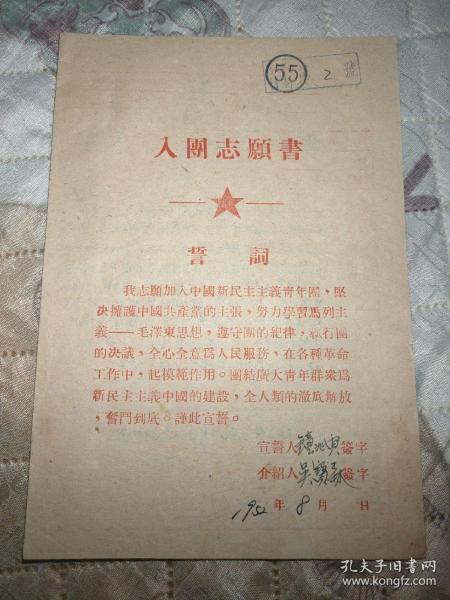 55
2 號
入團志願書
誓詞
我志願加入中國新民主主義青年團，堅
決擁護中國共產黨的主張，努力學習馬列主
義——毛澤東思想，遵守團的紀律，執行團
的決議，全心全意爲人民服務，在各種革命
工作中，起模範作用。團結廣大青年群衆爲
新民主主義中國的建設，全人類的澈底解放
，奮鬥到底。謹此宣誓。
宣誓人 簽字
介紹人吳 簽字
1952年8月 日
孔夫子旧书网
www.kongfz.com